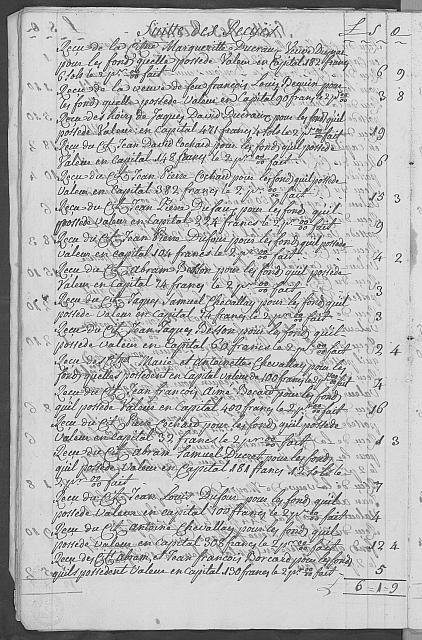 Suitte des Recettes £ S D
Recu de la Citne Margueritte Ducraux Veuve
pour les fond quelle possede Valeur en Capital 182 francs
6 sols le 2 pr 00/00 fait 6 9
Recu de la veuve de feu françois Louis Dequin pour
les fond quelle possede Valeur en Capital 90 francs le 2 pr 00/00 3 8
Recu des hoirs de Jaques David Ducraux pour les fond quil
possede Valeur en Capital 471 francs 4 sols le 2 pr 00/00 fait 19
Recu du Cit. Jean David Cochard pour les fond quil possede
Valeur en Capital 148 francs le 2 pr 00/00 fait 6
Recu du Cit. Jean Pierre Cochard pour les fond quil possede
Valeur en Capital 382 francs le 2 pr 00/00 fait 15 3
Recu du Cit. Jean Pierre Dufour pour les fond quil
possede Valeur en Capital 224 francs le 2 pr 00/00 fait 9
Recu du Cit. Jean Pierre Dufour pour les fond quil possede
Valeur en Capital 104 francs le 2 pr 00/00 fait 4 2
Recu du Cit. Abram Besson pour les fond quil possede
Valeur en Capital 74 francs le 2 pr 00/00 fait 3
Recu du Cit. Jaques Samuel Chevalley pour les fond quil
possede Valeur en Capital 74 francs le 2 pr 00/00 fait 3
Recu du Cit. Jean Jaques Besson pour les fond quil
possede valeur en Capital 60 francs le 2 pr 00/00 fait 2 4
Recu des Citnes Marie et Antoinette Chevalley pour les
fond quelles possedent en Capital valeur de 100 francs le 2 pr 00/00 fait 4
Recu du Cit. Jean françois Aimé Bocard pour les fond
quil possede Valeur en Capital 400 francs le 2 pr 00/00 fait 16
Recu du Cit. Pierre Cochard pour les fond quil possede
Valeur en Capital 32 francs le 2 pr 00/00 fait 1 3
Recu du Cit. Abram Samuel Ducret pour les fond
quil possede Valeur en Capital 181 francs 12 sols le
2 pr 00/00 fait 7
Recu du Cit. Jean Louis Dufour pour les fond quil
possede Valeur en capital 100 francs le 2 pr 00/00 fait 4
Recu du Cit. Antoine Chevalley pour les fond quil
possede valeur en Capital 308 francs le 2 pr 00/00 fait 12 4
Recu des Cit. Abram et Jean François Borcard pour les fond
quils possedent Valeur en Capital 130 francs le 2 pr 00/00 fait 5
£ 6 - 1 - 9